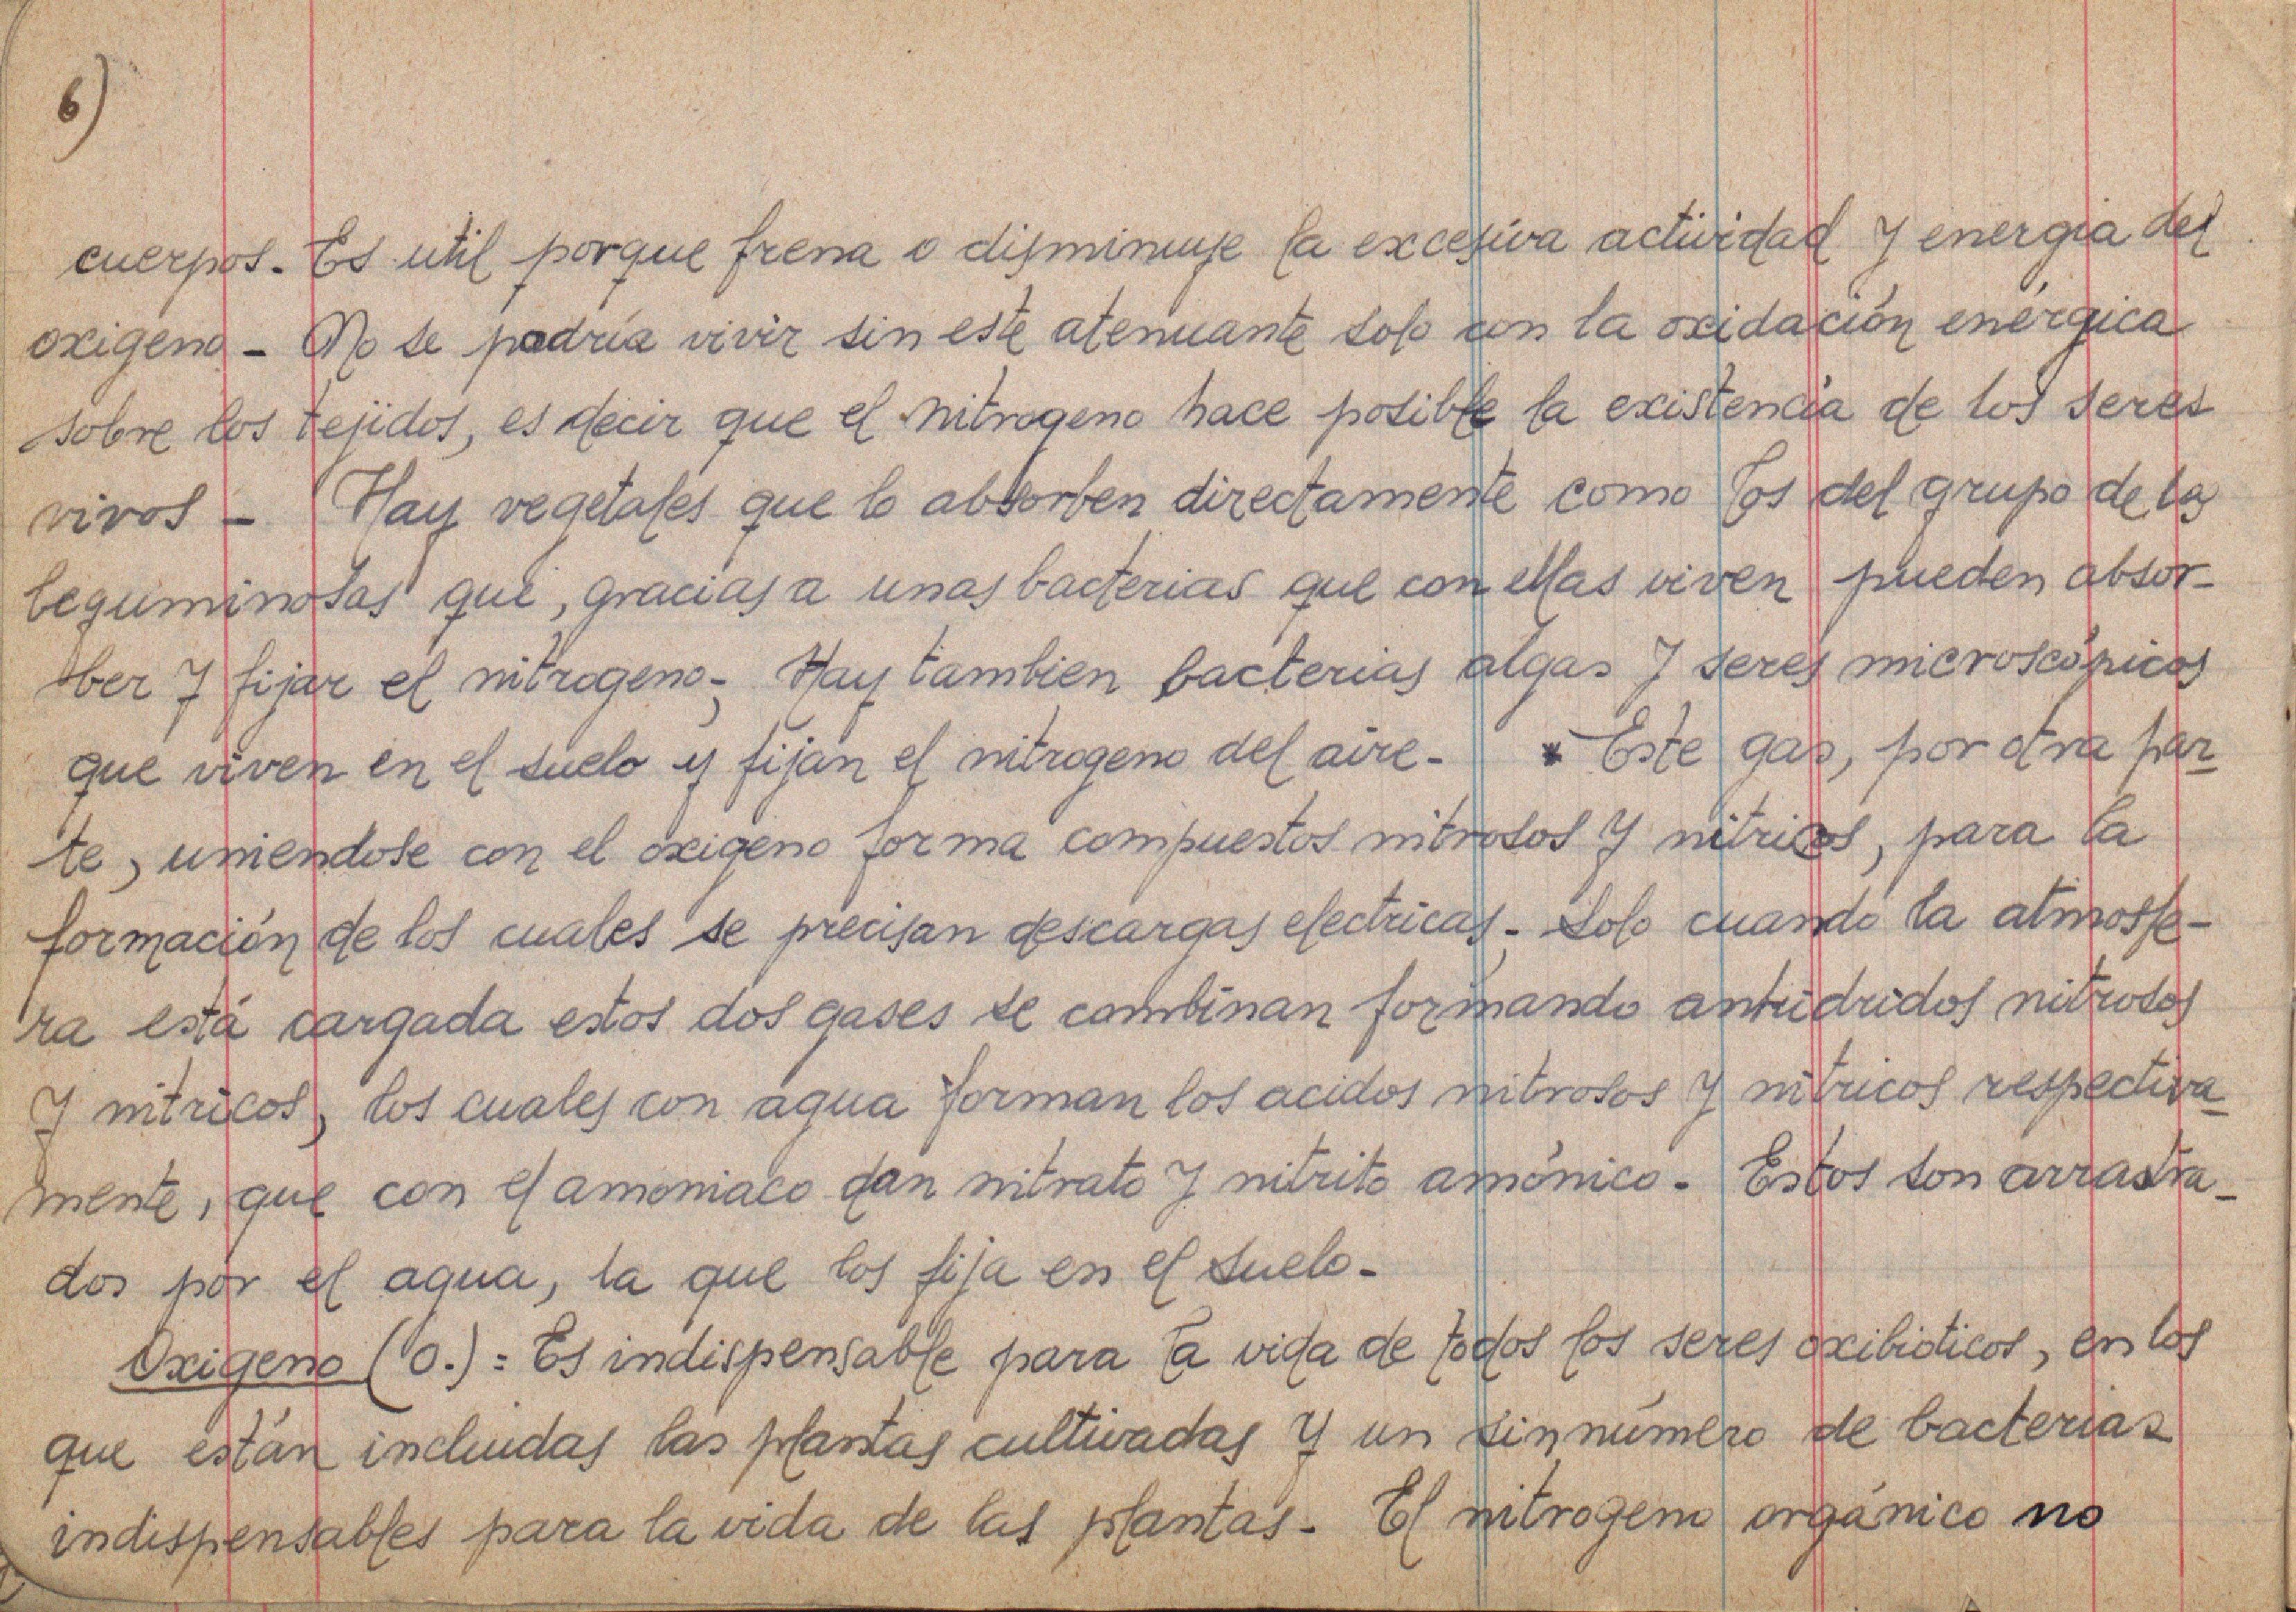 6)
cuerpos. Es util porque frena o disminuye la excesiva actividad y energia del
oxigeno - No se podría vivir sin este atenuante solo con la oxidación enérgica
sobre los tejidos, es decir que el nitrogeno hace posible la existencia de los seres
vivos - Hay vegetales que lo absorben directamente como los del grupo de las
leguminosas que, gracias a unas bacterias que con ellas viven pueden absor-
ber y fijar el nitrogeno-; Hay tambien bacterias algas y seres microscópicos
que viven en el suelo y fijan el nitrogeno del aire- * Este gas, por otra par-
te, uniendose con el oxigeno forma compuestos nitrosos y nitricos, para la
formación de los cuales se precisan descargas electricas.- Solo cuando la atmosfe-
ra está cargada estos dos gases se combinan formando anhidridos nitrosos
y nitricos, los cuales con agua forman los acidos nitrosos y nitricos respectiva-
mente, que con el amoniaco dan nitrato y nitrito amónico. Estos son arrastra-
dos por el agua, la que los fija en el suelo-
Oxigeno (O.) = Es indispensable para la vida de todos los seres oxibioticos, en los
que están incluidas las plantas cultivadas y un sinnúmero de bacterias
indispensables para la vida de las plantas- El nitrogeno orgánico no